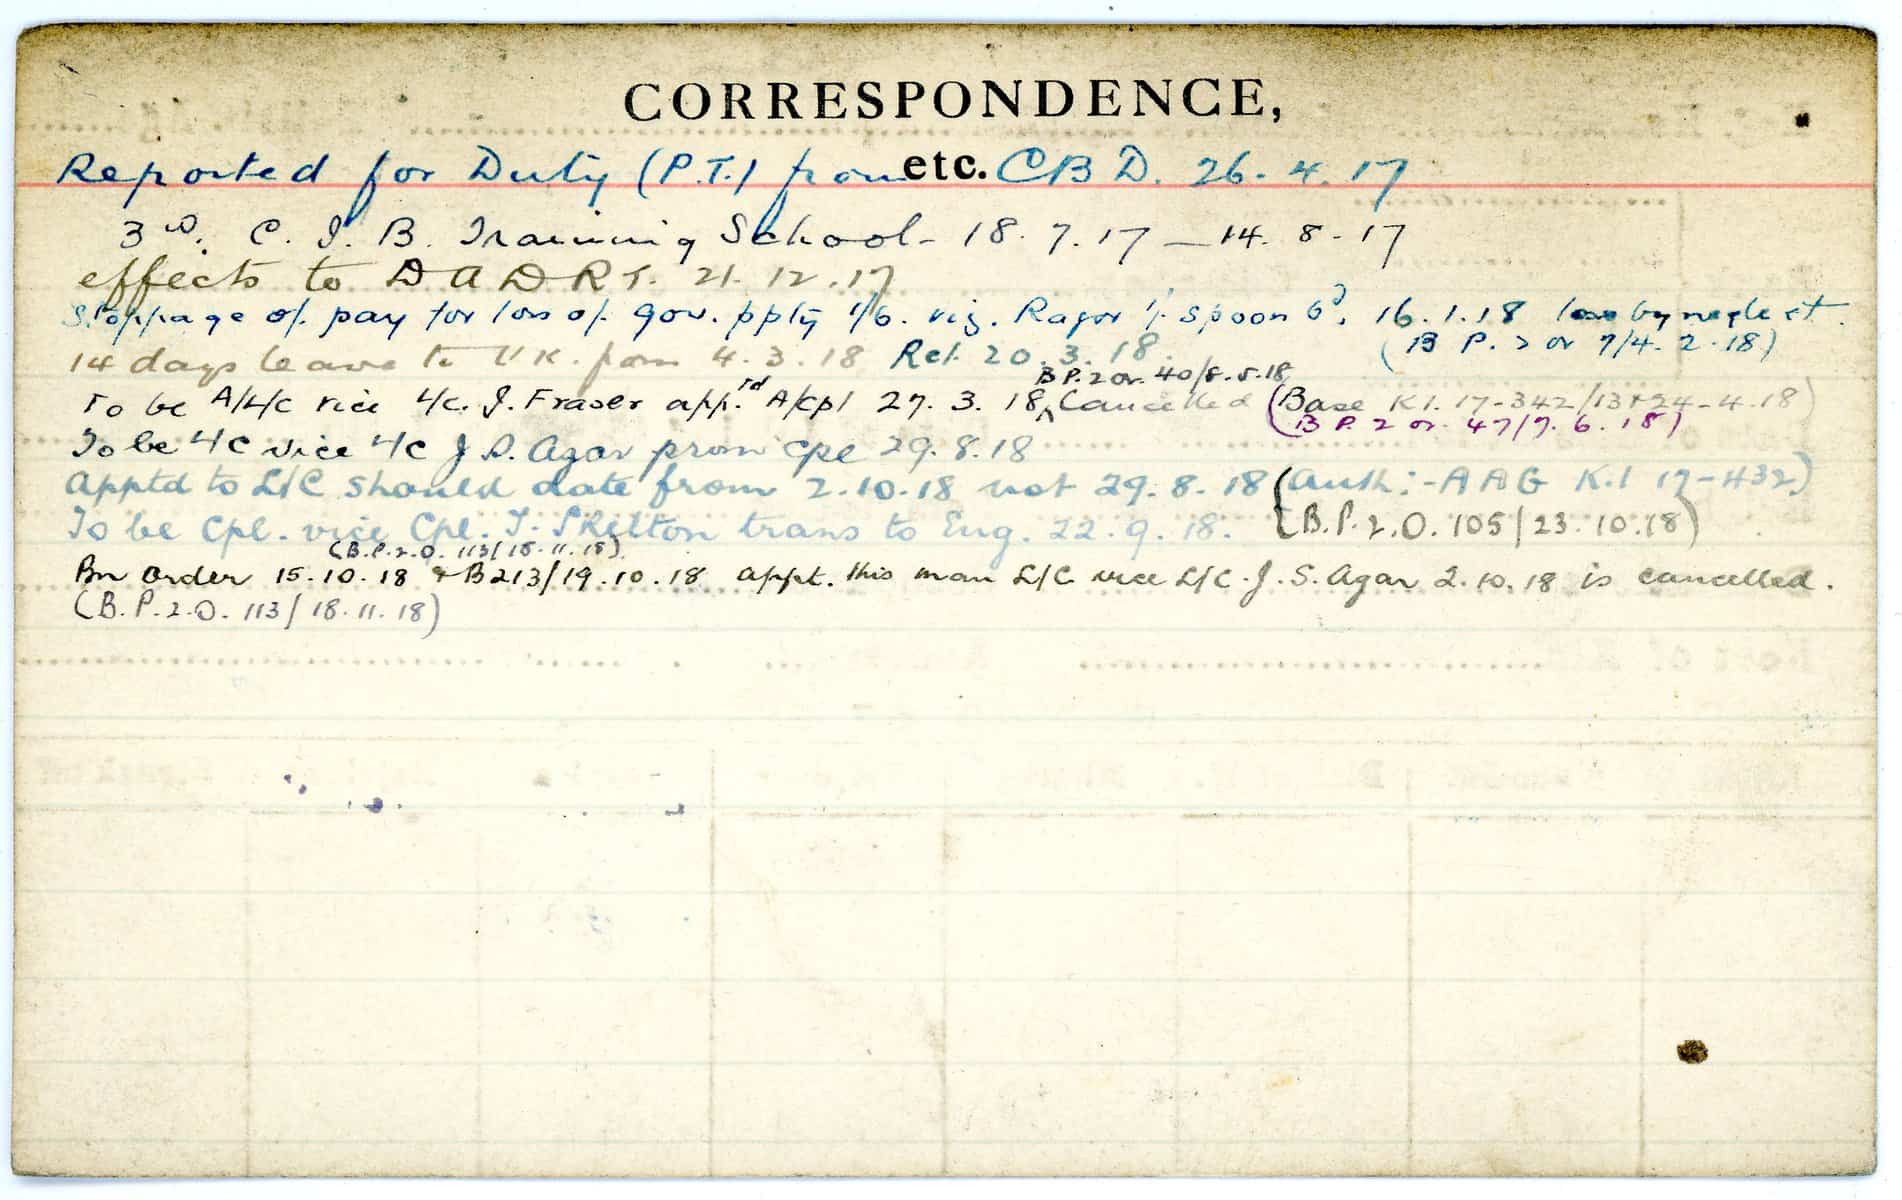 CORRESPONDENCE,
etc.
Reported for Duty (P.T.) from CBD. 26.4.17
3rd. C.I.B. Training School - 18.7.17 — 14.8.17
effects to DADRT. 21.12.17
Stoppage of pay for loss of Gov. ppty 1/6. viz. Razor 1/- Spoon 6d, 16.1.18 loss by neglect.
14 days leave to UK. from 4.3.18 Ret. 20.3.18. (B P. 2 or 7/4.2.18)
BP. 2 or. 40/8.5.18
To be A/L/C vice L/C. J. Fraser app.td A/Cpl 27.3.18 Cancelled (Base K1. 17-342/13+24-4.18)
(B P. 2 or. 47/7.6.18)
To be L/C vice L/C J.S. Agar prom Cpl 29.8.18
Apptd to L/C should date from 2.10.18 not 29.8.18 (Auth:- AAG K.1 17-432)
To be Cpl. vice Cpl. T. Skelton trans to Eng. 22.9.18. (B.P.2.O. 105/23.10.18)
(B.P.2.O. 113/18.11.18)
Bn order 15.10.18 & B213/19.10.18 appt. this man L/C vice L/C. J.S. Agar 2.10.18 is cancelled.
(B.P.2.O. 113/18.11.18)